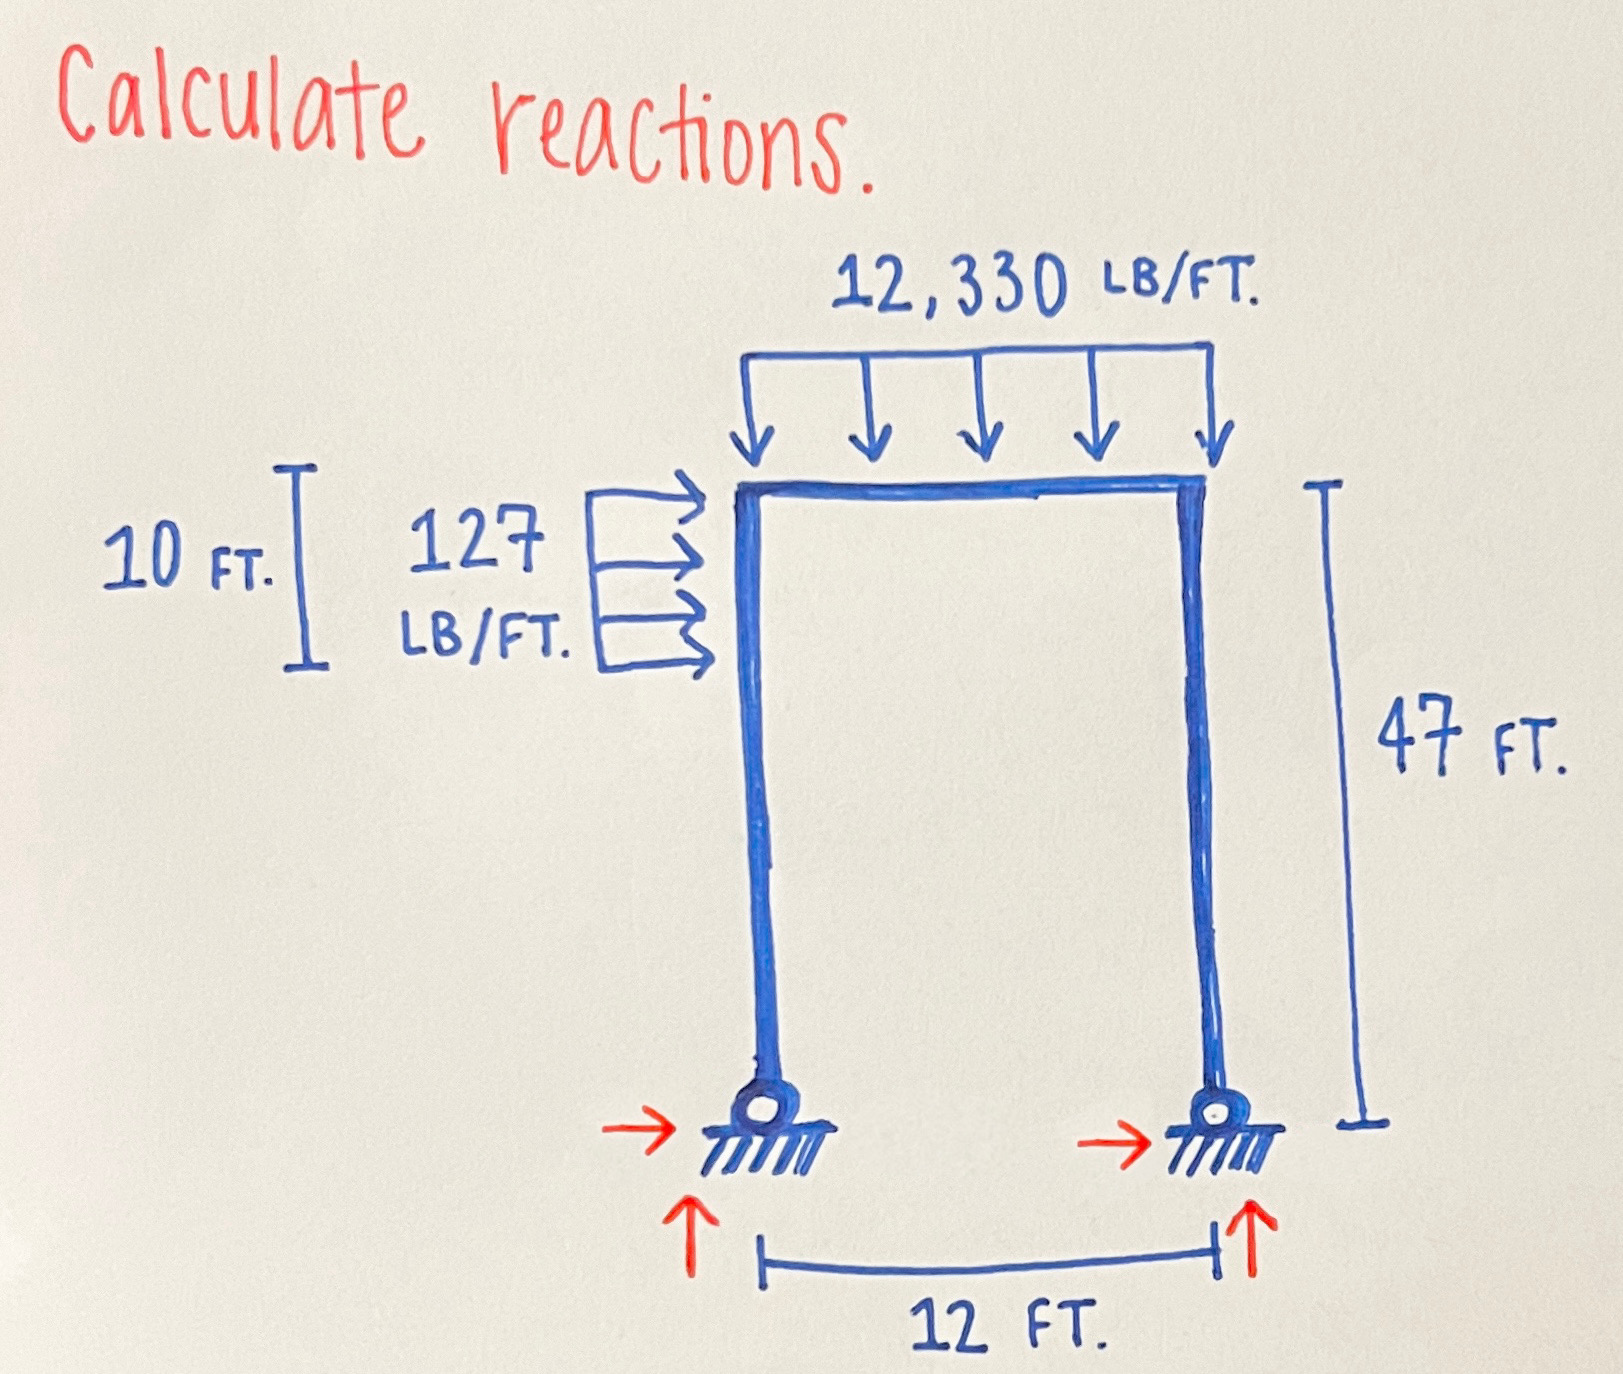 Calculate reactions.
12,330 LB/FT.
10 FT.
127
LB/FT.
47 FT.
12 FT.